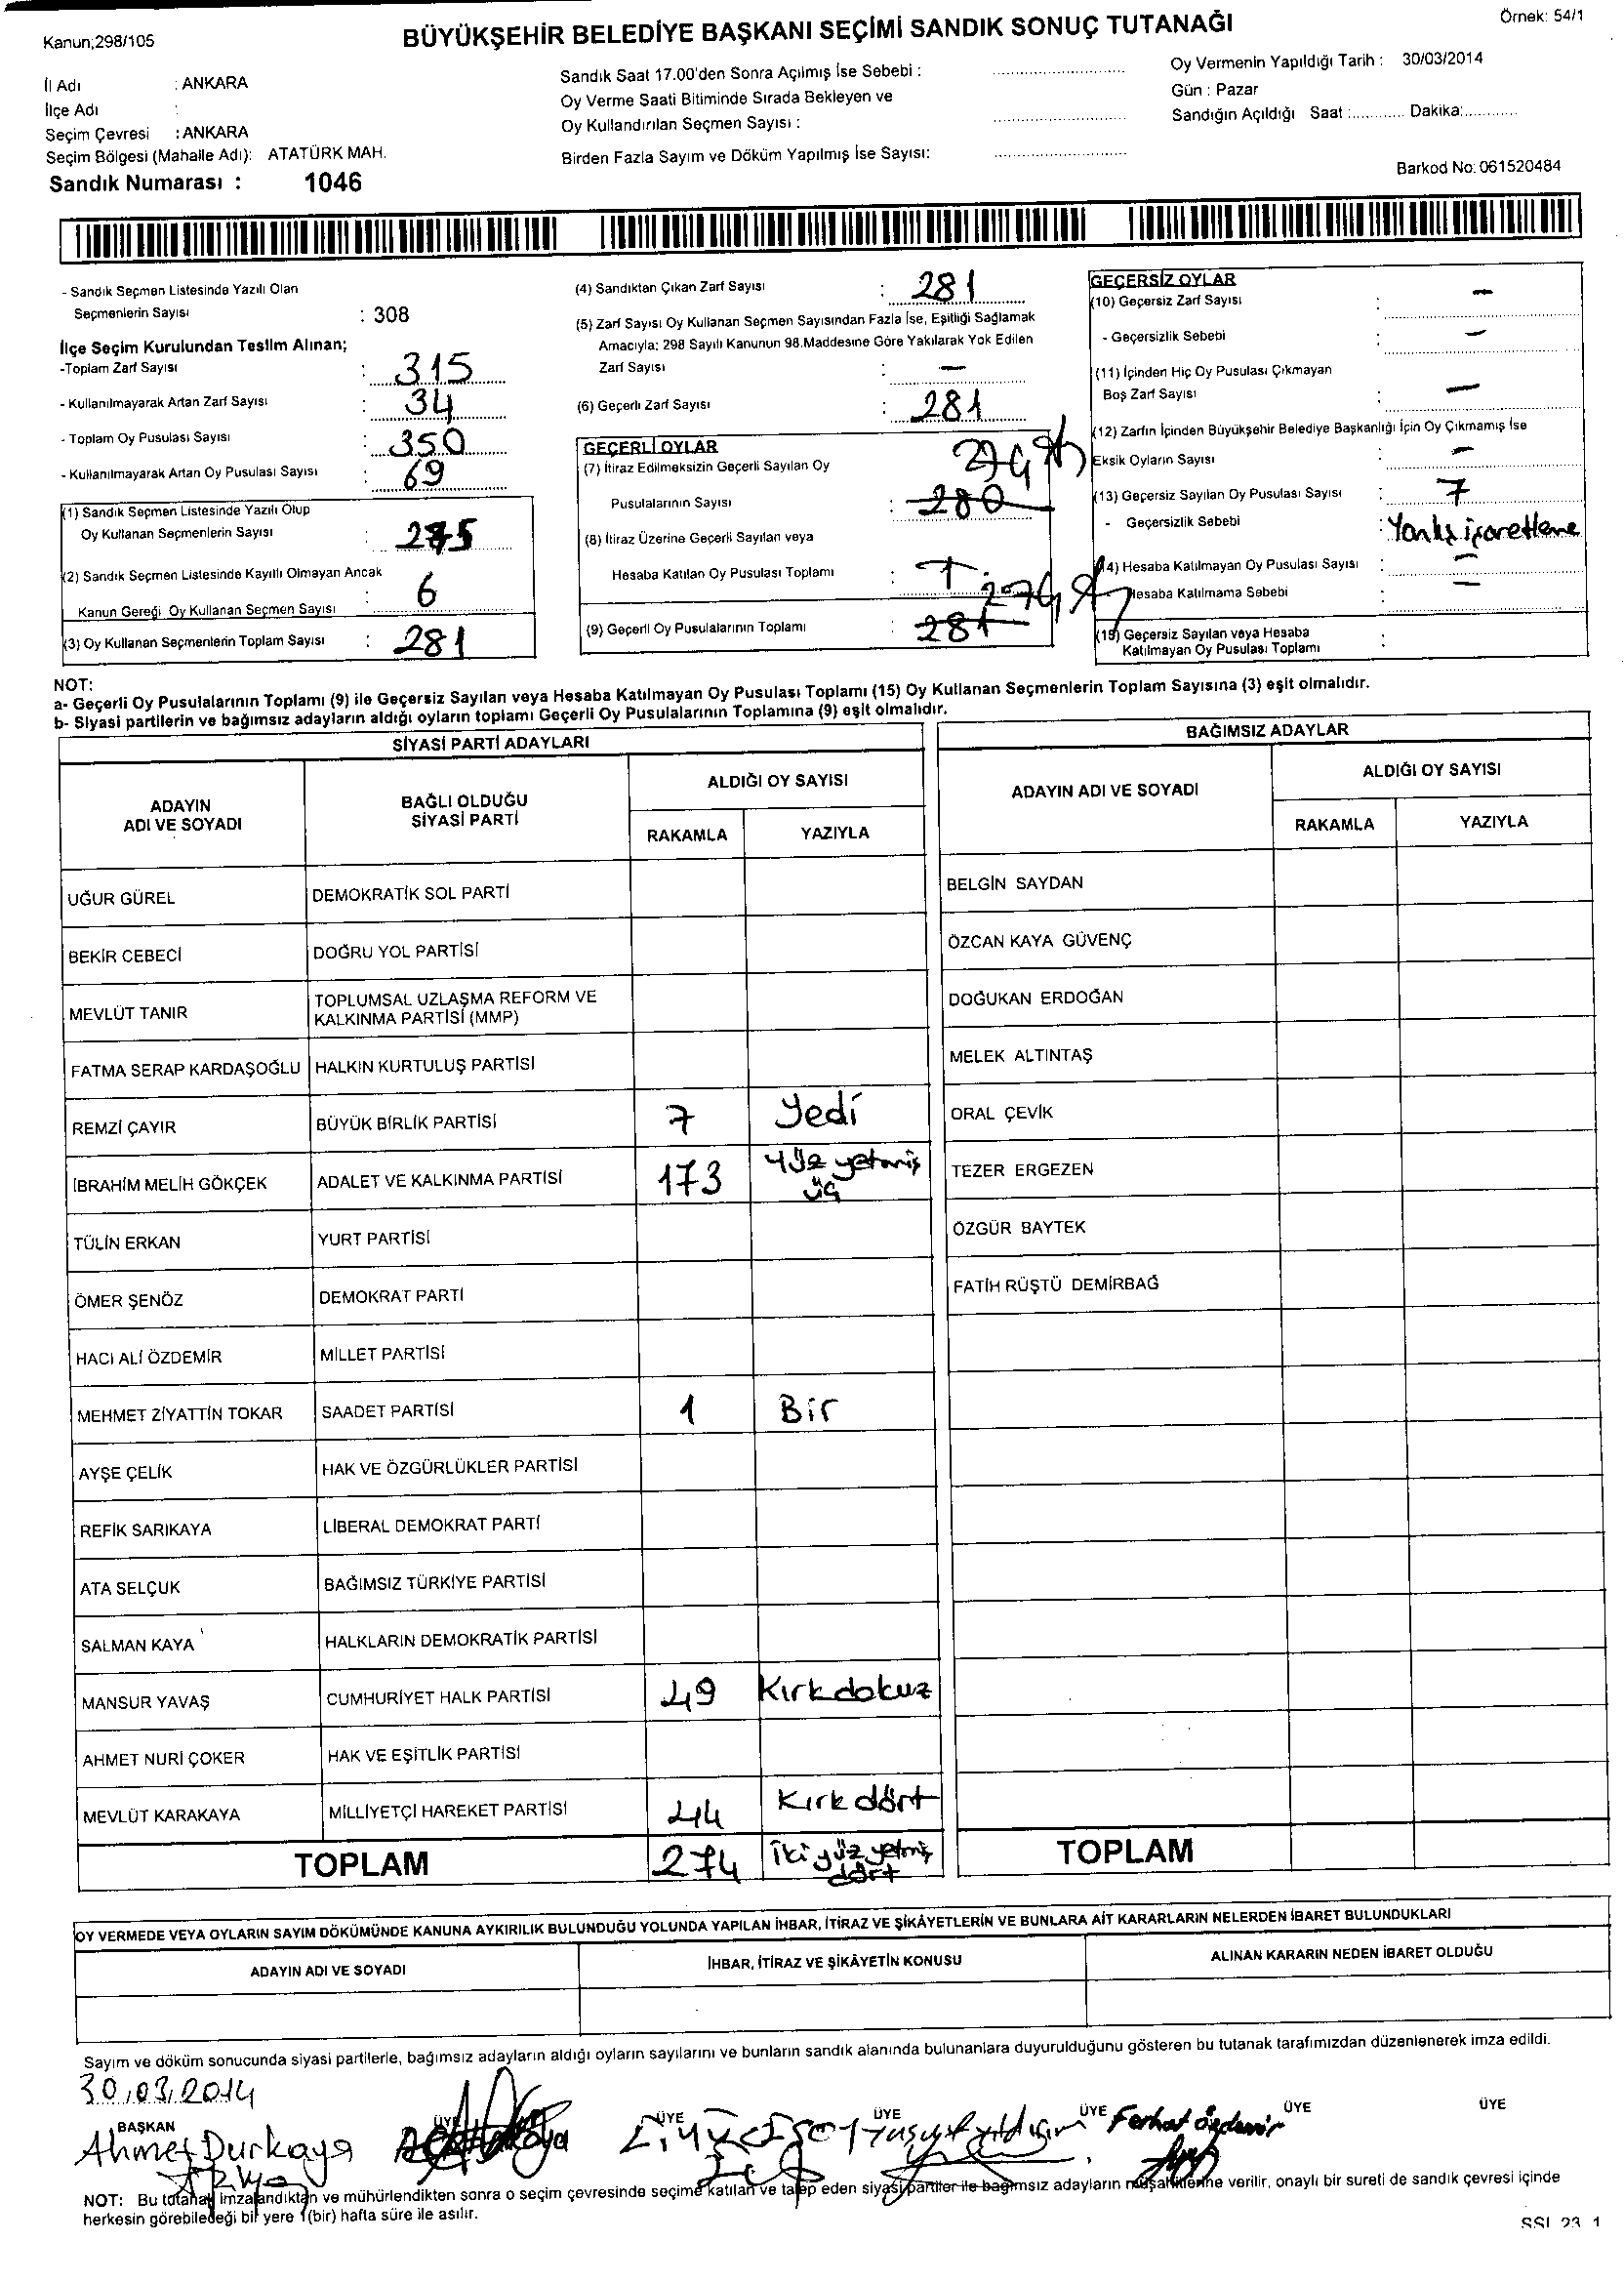 Kanun;298/105
BÜYÜKŞEHİR BELEDİYE BAŞKANI SEÇİMİ SANDIK SONUÇ TUTANAĞI
Örnek: 54/1
İl Adı : ANKARA
İlçe Adı :
Seçim Çevresi : ANKARA
Seçim Bölgesi (Mahalle Adı): ATATÜRK MAH.
Sandık Numarası : 1046
Sandık Saat 17.00'den Sonra Açılmış İse Sebebi :
Oy Verme Saati Bitiminde Sırada Bekleyen ve
Oy Kullandırılan Seçmen Sayısı :
Birden Fazla Sayım ve Döküm Yapılmış İse Sayısı:
Oy Vermenin Yapıldığı Tarih : 30/03/2014
Gün : Pazar
Sandığın Açıldığı Saat :............ Dakika:............
Barkod No: 061520484
- Sandık Seçmen Listesinde Yazılı Olan
Seçmenlerin Sayısı : 308
İlçe Seçim Kurulundan Teslim Alınan;
-Toplam Zarf Sayısı : 315
- Kullanılmayarak Artan Zarf Sayısı : 34
- Toplam Oy Pusulası Sayısı : 350
- Kullanılmayarak Artan Oy Pusulası Sayısı : 69
(1) Sandık Seçmen Listesinde Yazılı Olup
Oy Kullanan Seçmenlerin Sayısı : 275
(2) Sandık Seçmen Listesinde Kayıtlı Olmayan Ancak
Kanun Gereği Oy Kullanan Seçmen Sayısı : 6
(3) Oy Kullanan Seçmenlerin Toplam Sayısı : 281
(4) Sandıktan Çıkan Zarf Sayısı : 281
(5) Zarf Sayısı Oy Kullanan Seçmen Sayısından Fazla İse, Eşitliği Sağlamak
Amacıyla; 298 Sayılı Kanunun 98.Maddesine Göre Yakılarak Yok Edilen
Zarf Sayısı : —
(6) Geçerli Zarf Sayısı : 281
GEÇERLİ OYLAR
(7) İtiraz Edilmeksizin Geçerli Sayılan Oy
Pusulalarının Sayısı : 280
(8) İtiraz Üzerine Geçerli Sayılan veya
Hesaba Katılan Oy Pusulası Toplamı :
274
(9) Geçerli Oy Pusulalarının Toplamı : 281
GEÇERSİZ OYLAR
(10) Geçersiz Zarf Sayısı : —
- Geçersizlik Sebebi : —
(11) İçinden Hiç Oy Pusulası Çıkmayan
Boş Zarf Sayısı : —
(12) Zarfın İçinden Büyükşehir Belediye Başkanlığı İçin Oy Çıkmamış İse
Eksik Oyların Sayısı : —
(13) Geçersiz Sayılan Oy Pusulası Sayısı : 7
- Geçersizlik Sebebi : Yanlış işaretleme
(14) Hesaba Katılmayan Oy Pusulası Sayısı : —
Hesaba Katılmama Sebebi : —
(15) Geçersiz Sayılan veya Hesaba
Katılmayan Oy Pusulası Toplamı :
NOT:
a- Geçerli Oy Pusulalarının Toplamı (9) ile Geçersiz Sayılan veya Hesaba Katılmayan Oy Pusulası Toplamı (15) Oy Kullanan Seçmenlerin Toplam Sayısına (3) eşit olmalıdır.
b- Siyasi partilerin ve bağımsız adayların aldığı oyların toplamı Geçerli Oy Pusulalarının Toplamına (9) eşit olmalıdır.
SİYASİ PARTİ ADAYLARI
ADAYIN ADI VE SOYADI
BAĞLI OLDUĞU SİYASİ PARTİ
ALDIĞI OY SAYISI
RAKAMLA YAZIYLA
UĞUR GÜREL DEMOKRATİK SOL PARTİ
BEKİR CEBECİ DOĞRU YOL PARTİSİ
MEVLÜT TANIR TOPLUMSAL UZLAŞMA REFORM VE
KALKINMA PARTİSİ (MMP)
FATMA SERAP KARDAŞOĞLU HALKIN KURTULUŞ PARTİSİ
REMZİ ÇAYIR BÜYÜK BİRLİK PARTİSİ 7 Yedi
İBRAHİM MELİH GÖKÇEK ADALET VE KALKINMA PARTİSİ 173 Yüz yetmiş
üç
TÜLİN ERKAN YURT PARTİSİ
ÖMER ŞENÖZ DEMOKRAT PARTİ
HACI ALİ ÖZDEMİR MİLLET PARTİSİ
MEHMET ZİYATTİN TOKAR SAADET PARTİSİ 1 Bir
AYŞE ÇELİK HAK VE ÖZGÜRLÜKLER PARTİSİ
REFİK SARIKAYA LİBERAL DEMOKRAT PARTİ
ATA SELÇUK BAĞIMSIZ TÜRKİYE PARTİSİ
SALMAN KAYA HALKLARIN DEMOKRATİK PARTİSİ
MANSUR YAVAŞ CUMHURİYET HALK PARTİSİ 49 Kırkdokuz
AHMET NURİ ÇOKER HAK VE EŞİTLİK PARTİSİ
MEVLÜT KARAKAYA MİLLİYETÇİ HAREKET PARTİSİ 44 Kırk dört
TOPLAM 274 İki yüz yetmiş
dört
BAĞIMSIZ ADAYLAR
ADAYIN ADI VE SOYADI
ALDIĞI OY SAYISI
RAKAMLA YAZIYLA
BELGİN SAYDAN
ÖZCAN KAYA GÜVENÇ
DOĞUKAN ERDOĞAN
MELEK ALTINTAŞ
ORAL ÇEVİK
TEZER ERGEZEN
ÖZGÜR BAYTEK
FATİH RÜŞTÜ DEMİRBAĞ
TOPLAM
OY VERMEDE VEYA OYLARIN SAYIM DÖKÜMÜNDE KANUNA AYKIRILIK BULUNDUĞU YOLUNDA YAPILAN İHBAR, İTİRAZ VE ŞİKÂYETLERİN VE BUNLARA AİT KARARLARIN NELERDEN İBARET BULUNDUKLARI
ADAYIN ADI VE SOYADI İHBAR, İTİRAZ VE ŞİKÂYETİN KONUSU ALINAN KARARIN NEDEN İBARET OLDUĞU
Sayım ve döküm sonucunda siyasi partilerle, bağımsız adayların aldığı oyların sayılarını ve bunların sandık alanında bulunanlara duyurulduğunu gösteren bu tutanak tarafımızdan düzenlenerek imza edildi.
30.03.2014
BAŞKAN ÜYE ÜYE ÜYE ÜYE ÜYE ÜYE
Ahmet Durkaya Yusuf yıldırım Ferhat özdemir
NOT: Bu tutanak imzalandıktan ve mühürlendikten sonra o seçim çevresinde seçime katılan ve talep eden siyasi partiler ile bağımsız adayların müşahitlerine verilir, onaylı bir sureti de sandık çevresi içinde
herkesin görebileceği bir yere 1(bir) hafta süre ile asılır.